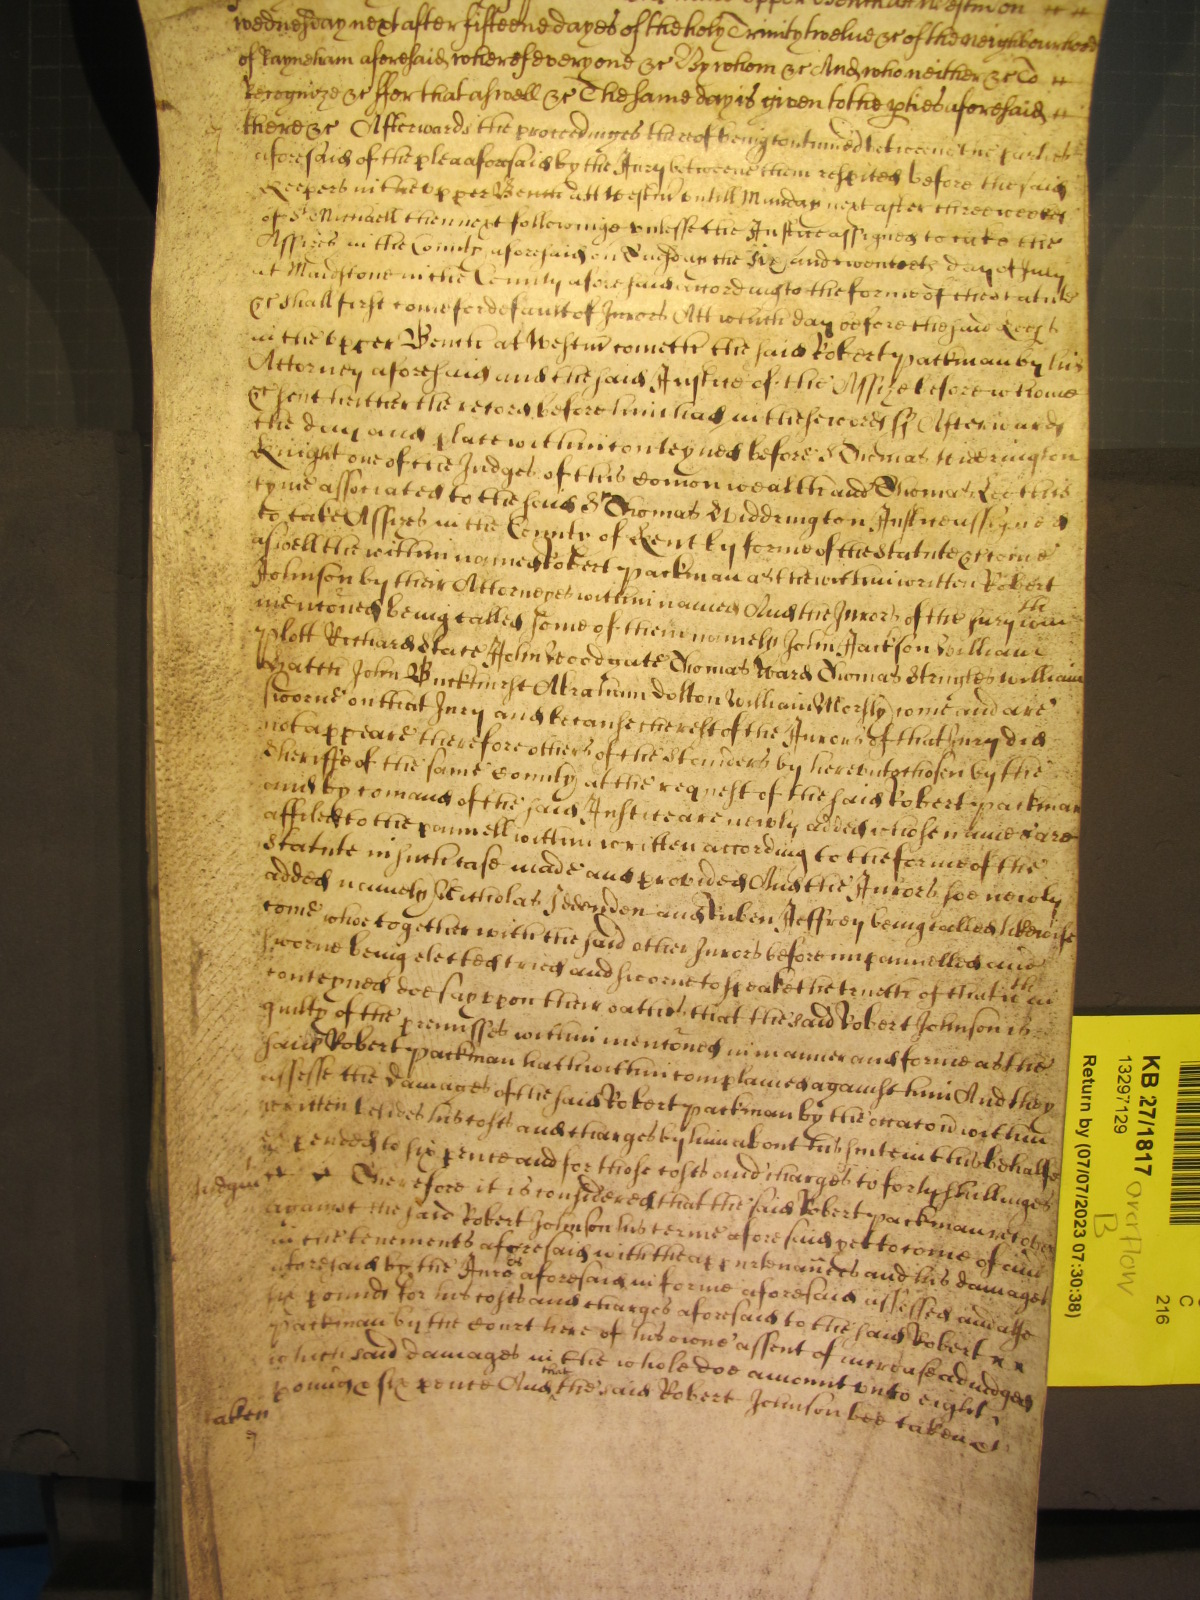 upper Bench at Westm̄ on
wednesday next after fifteene dayes of the holy Trinity twelue &c of the neighbourhood
of Rayneham aforesaid, where of every one &c By whom &c And who neither &c To
Recognize &c ffor that aswell &c The same day is given to the p̱ties aforesaid
there &c Afterwards the proceedinges thereof being continued betweene the parties
aforesaid of the plea aforesaid by the Jury betweene them respited before the said
Keepers in the Upper Bench att Westm̄ vntill Munday next after three weekes
of St Michaell then next followinge vnlesse the Justice assigned to take the
Assizes in the County aforesaid on Tuesday the Six and twenteeth day of July
at Maidstone in the County aforesaid according to the forme of the statute
&c shall first come for default of Jurors Att which day before the said Keep̱s
in the Upper Bench at Westm̄ cometh the said Robert Packman by his
Attorney aforesaid and the said Justice of the Assize before whome
&c sent hether the record before him had in these words ss Afterwards
the day and place within conteyned before Sr Thomas Widdrington
Knight one of the Judges of this Com̄on wealth and Thomas
tyme associated to the said Sr Thomas Widdrington Justice assigned
to take Assizes in the County of Kent by forme of the Statute &c come
aswell the within named Robert Packman as the within written Robert
Johnson by their Attorneyes within named And the Jurors of the Jury wthin
menc̄oned being called some of them namely John Jackson William
Plott Richard Slate John Woodgate Thomas Ward Thomas Stringles William
Hatch John Buckhurst Abraham Dolton William Morsly come and are
sworne on that Jury and because the rest of the Jurors of that Jury did
not appeare therefore others of the standers by herevnto chosen by the
Sheriffe of the same County at the request of the said Robert Packman
and by com̄and of the said Justice are newly added whose names are
affiled to the pannell within written according to the forme of the
Statute in such case made and provided And the Jurors soe newly
added namely Nicholas Ideenden and Ruben Jeffrey being called likewise
come whoe together with the said other Jurors before impannelled and
sworne being elected tried and sworne to speake the trueth of that wthin
conteyned doe say vpon their oathes that the said Robert Johnson is
guilty of the premisses within menc̄oned in manner and forme as the
said Robert Packman hath within complained against him And they
assesse the damages of the said Robert Packman by the occac̄on within
written besides his costs and charges by him about his suite in this behalfe
expended to six pence and for those costs and charges to forty shillinges
Judgm̄t Therefore it is considered that the said Robert Packman recover
against the said Robert Johnson his terme aforesaid yet to come of and
in the tenements aforesaid with the appurtenances and his damages
aforesaid by the Jurors aforesaid in forme aforesaid assessed and alsoe
six pounds for his costs and charges aforesaid to the said Robert
Packman by the Court here of his owne assent of increase adiudged
which said damages in the whole doe amount vnto eight
pounds six pence And that the said Robert Johnson bee taken &c
taken
KB 27/1817
13297129
Return by (07/07/2023 07:30:38)
overflow
B
C
216